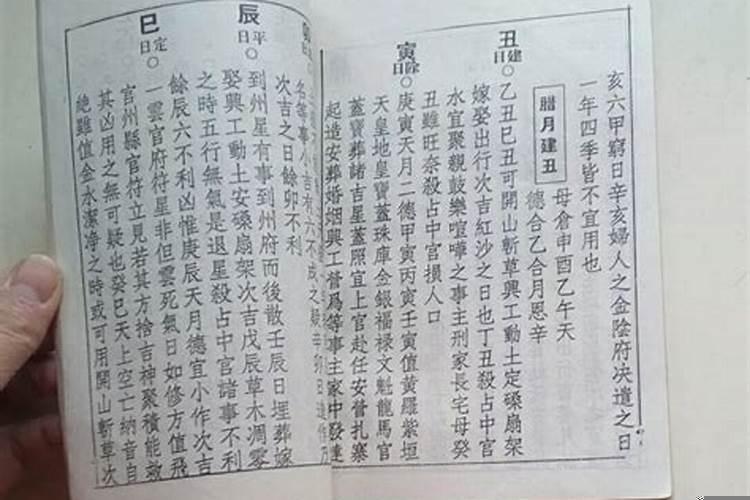 亥六甲窮日辛亥婦人之金陰府决遣之日
一年四季皆不宜用也
臘月建丑
母倉申酉乙午天
德合乙合月恩辛
丑建日○乙丑巳丑可開山斬草興工動土定磉扇架
嫁娶出行次吉紅沙之日也丁丑殺占中宮
水宜聚親鼓樂喧嘩之事主刑家長宅母癸
丑雖旺奈殺占中宮損人口
寅除日○庚寅天月二德甲寅丙寅壬寅值黄羅紫垣
天皇地皇寶蓋珠庫金銀福禄文魁龍馬官
蓋寶葬諸吉星蓋照宜上官赴任安營扎寨
起造安葬婚姻興工營爲等事主家中發達
名等事小吉有六不成之疑辛卯日造作
次吉之日餘卯不利
辰平日○到州星有事到州府而後散壬辰日埋葬嫁
娶興工動土安磉扇架次吉戊辰草木凋零
之時五行無氣是退星殺占中宮諸事不利
餘辰六不利凶惟庚辰天月德宜小作次吉
巳定日○一雲官府符星非但雲死氣日如修方值飛
官州縣官符立見若其方捨吉神聚積能效
其凶用之無可疑也癸巳天上空亡納音自
絶雖值金水潔净之時或可用開山斬草次